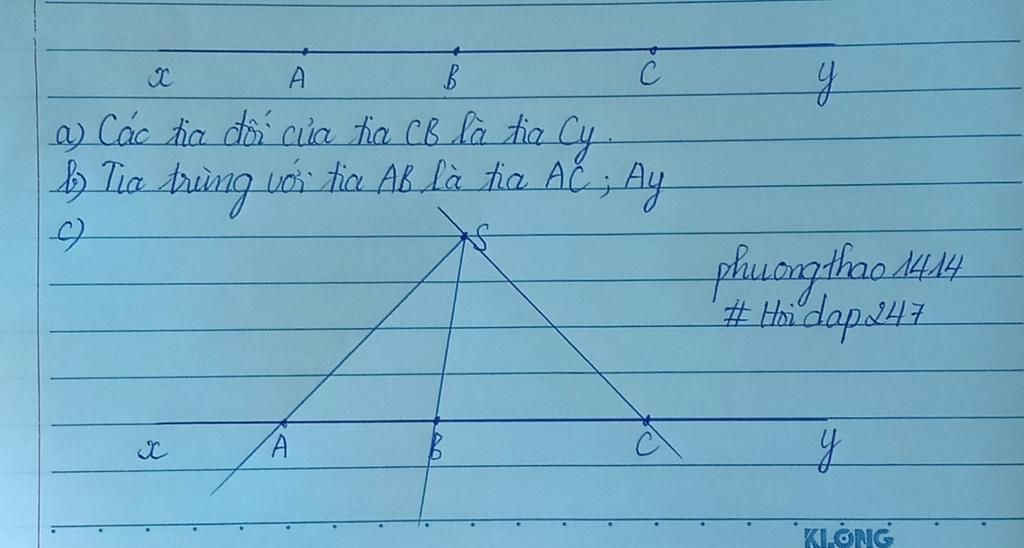 x A B C y
a) Các tia đối của tia CB là tia Cy.
b) Tia trùng với tia AB là tia AC ; Ay
c)
S
phuongthao1414
# Hoidap247
x A B C y
KLONG